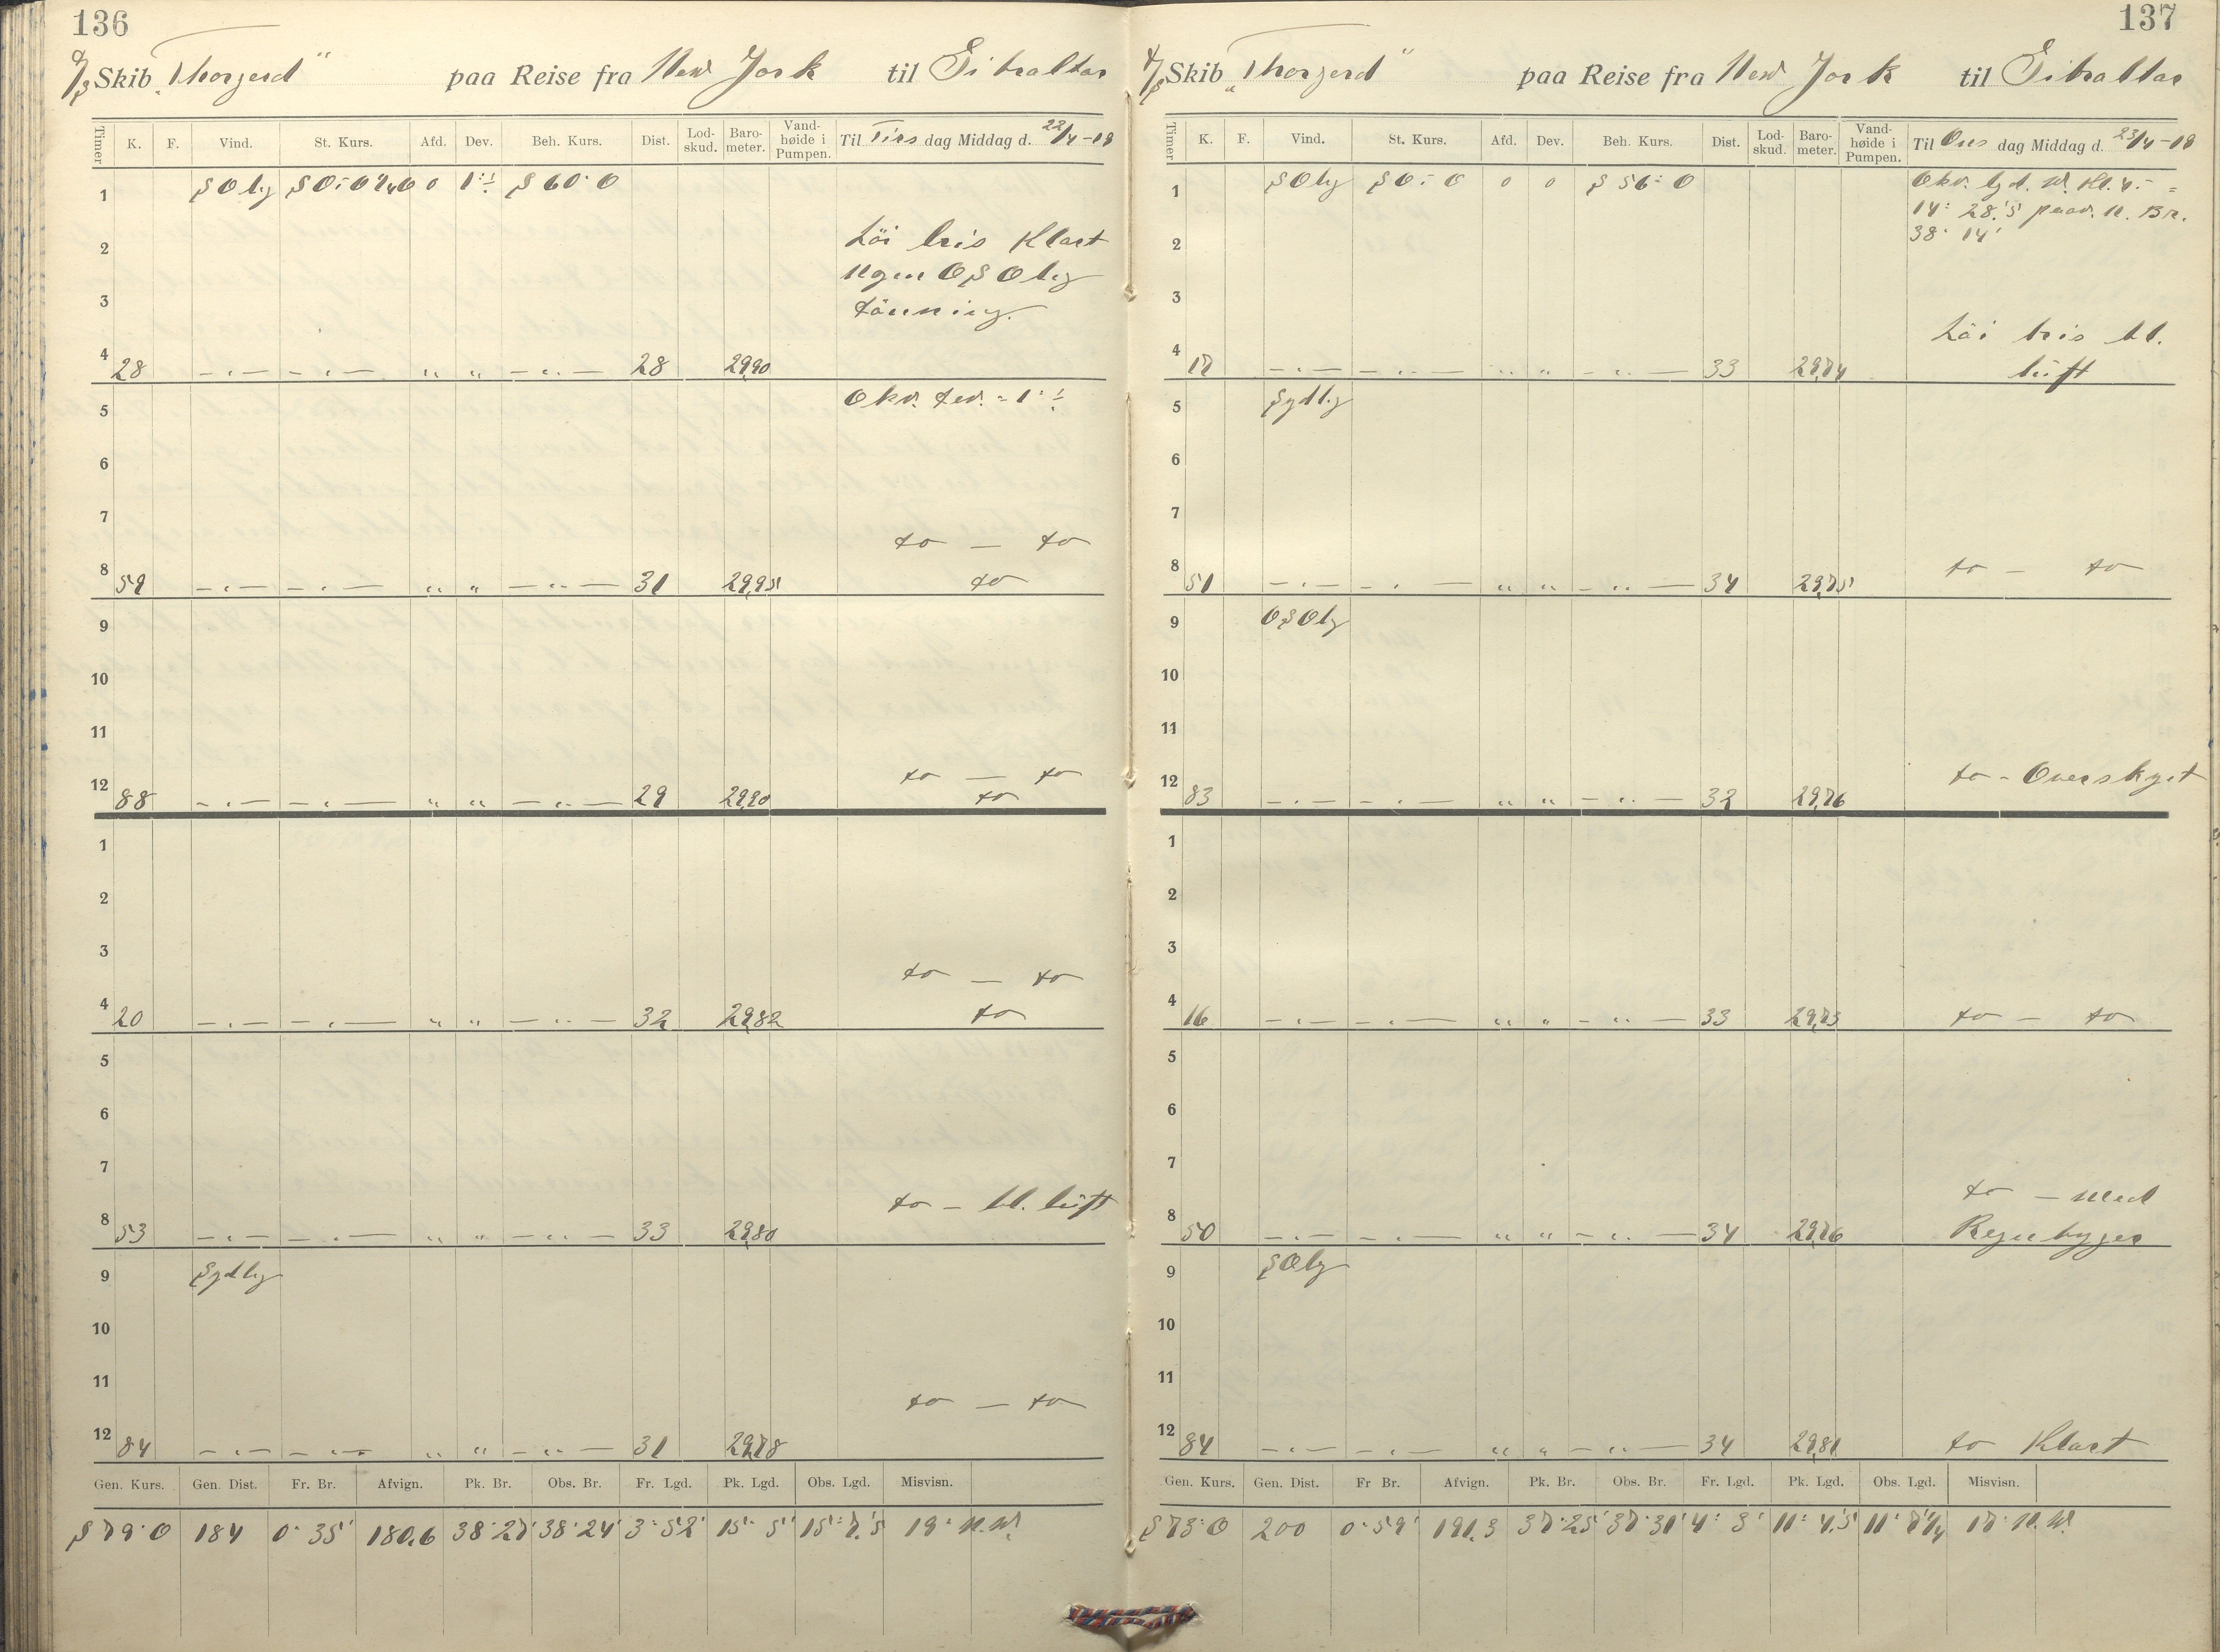 136
Skib „Thorgerd" paa Reise fra New York til Gibraltar
Timer K. F. Vind. St. Kurs. Afd. Dev. Beh. Kurs. Dist. Lod-skud. Baro-meter. Vand-høide i Pumpen. Til Tirs dag Middag d. 22/4-19
1 SOlig 0 S 60° O
2 Löi bris Klart
Ugen OSOlig
3 dönning.
4 28 — „ — — „ — „ „ — „ — 28 29,90
5 Obs. dev. = 1°
6
7 do — do
8 59 — „ — — „ — „ „ — „ — 31 29,95 do
9
10
11
do — do
12 88 — „ — — „ — „ „ — „ — 29 29,90 do
1
2
3
do — do
4 20 — „ — — „ — „ „ — „ — 32 29,82 do
5
6
7
do — bl. luft
8 53 — „ — — „ — „ „ — „ — 33 29,80
9 Sydlig
10
11
do — do
12 84 — „ — — „ — „ „ — „ — 31 29,78
Gen. Kurs. Gen. Dist. Fr. Br. Afvign. Pk. Br. Obs. Br. Fr. Lgd. Pk. Lgd. Obs. Lgd. Misvisn.
S 79° O 184 0° 35' 180,6 38° 27' 38° 24' 3° 52' 15° 5' 15° 7,'5 19° N.W.
137
Skib „Thorgerd" paa Reise fra New York til Gibraltar
Timer K. F. Vind. St. Kurs. Afd. Dev. Beh. Kurs. Dist. Lod-skud. Baro-meter. Vand-høide i Pumpen. Til Ons dag Middag d. 23/4-19
1 SOlig SO 0 0 S 56° O Obs. lgd. W. Kl. 4. =
14° 28,'5 paav. N. Br.
2 38° 14'
3
Löi bris bl.
4 17 — „ — — „ — „ „ — „ — 33 29,74 luft
5 Sydlig
6
7
8 51 — „ — — „ — „ „ — „ — 34 29,75 do — do
9 OSOlig
10
11
12 83 — „ — — „ — „ „ — „ — 32 29,76 do - Overskyet
1
2
3
4 16 — „ — — „ — „ „ — „ — 33 29,73 do — do
5
6
7
do — med
8 50 — „ — — „ — „ „ — „ — 34 29,76 Regnbyger
9 SOlig
10
11
12 84 — „ — — „ — „ „ — „ — 34 29,81 do Klart
Gen. Kurs. Gen. Dist. Fr Br. Afvign. Pk. Br. Obs. Br. Fr. Lgd. Pk. Lgd. Obs. Lgd. Misvisn.
S 73° O 200 0° 59' 191,3 37° 25' 37° 31' 4° 3' 11° 4,'5 11° 17° N.W.